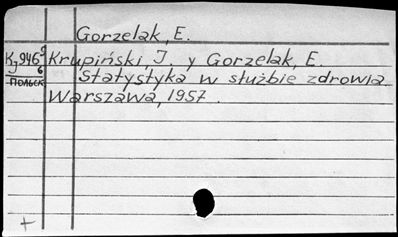 Gorzelak, E.
Kj946 9/6 Krupiński, J. y Gorzelak, E.
польск Statystyka w służbie zdrowia
Warszawa, 1957.
+